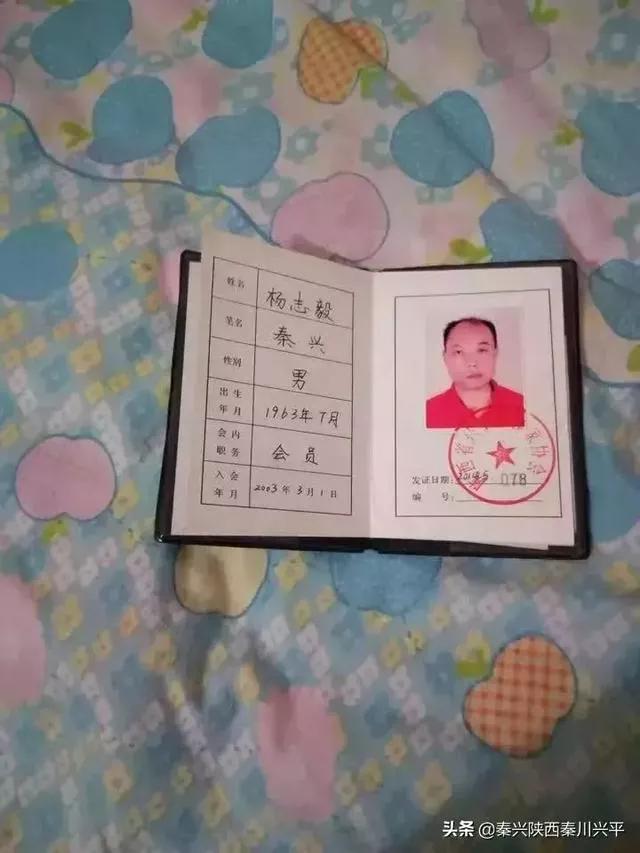 姓名 杨志毅
笔名 秦兴
性别 男
出生年月 1963年7月
会内职务 会员
入会年月 2003年3月1日
发证日期:
编号: 078
头条 @秦兴陕西秦川兴平